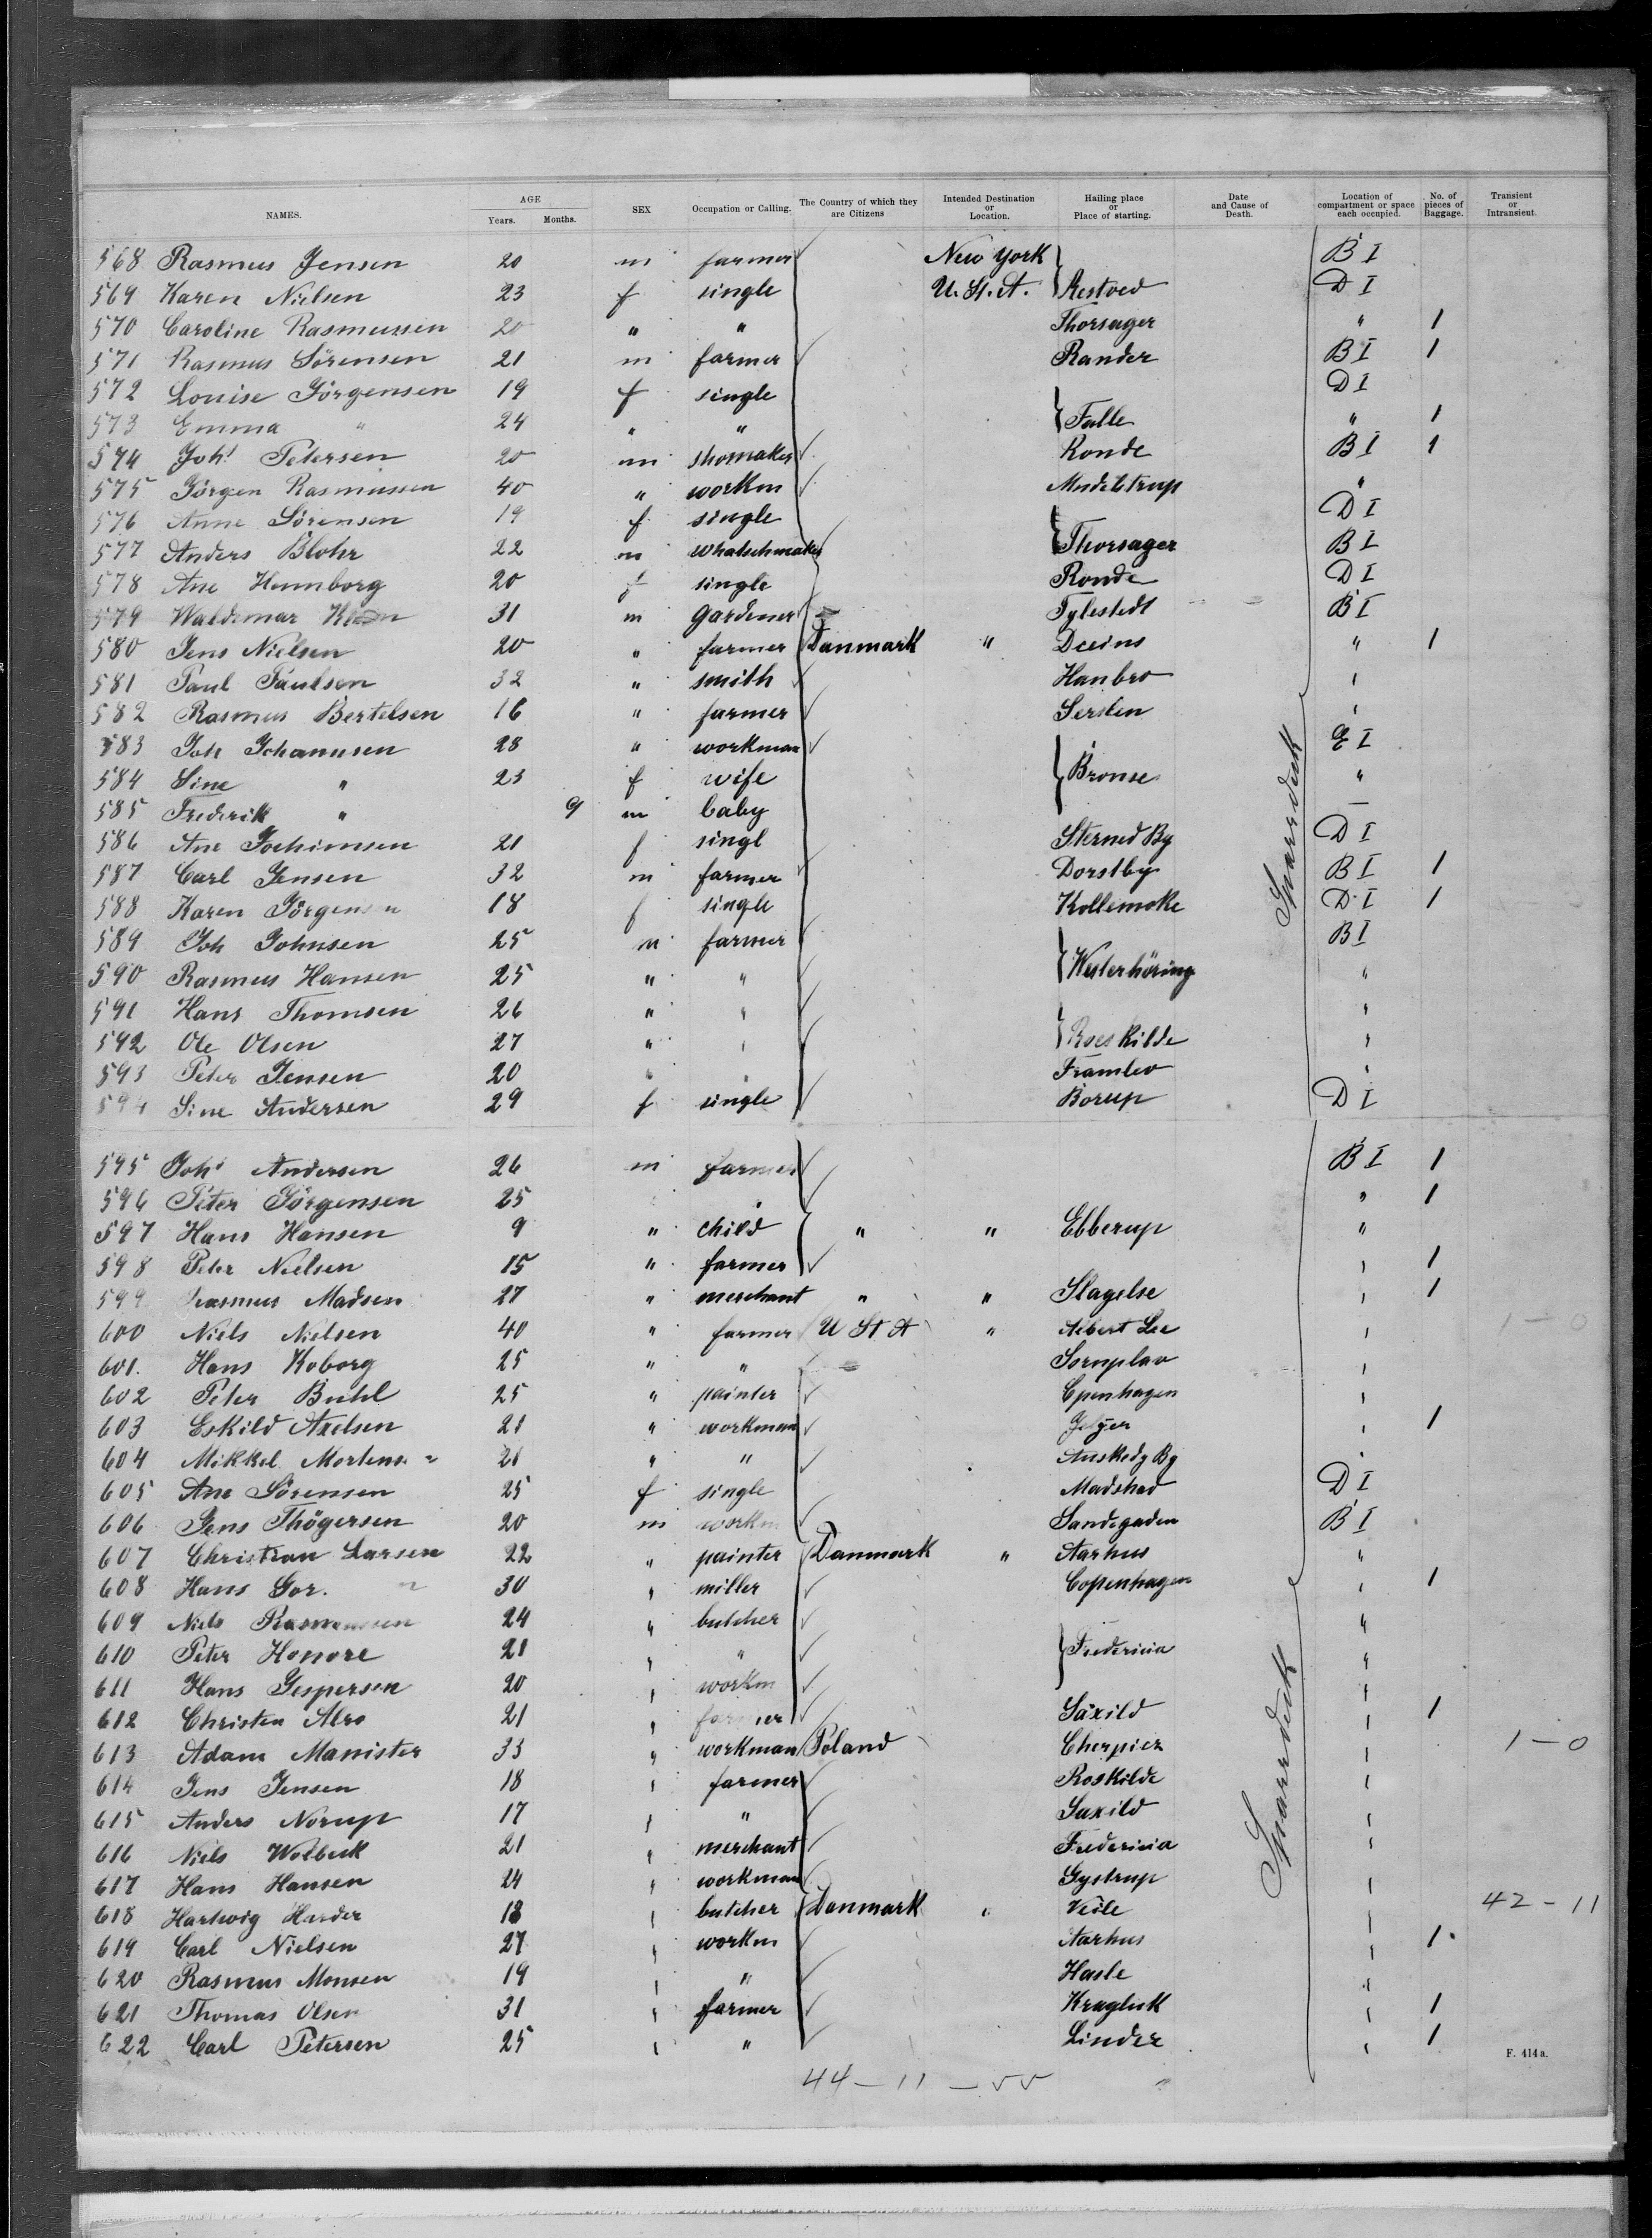 NAMES. AGE Years. Months. SEX Occupation or Calling. The Country of which they are Citizens Intended Destination or Location. Hailing place or Place of starting. Date and Cause of Death. Location of compartment or space each occupied. No. of pieces of Baggage. Transient or Intransient.
568 Rasmus Jensen 20 m farmer New York B I
569 Karen Nielsen 23 f single U. St. A. Restved D I
570 Caroline Rasmussen 20 " " Thorsager " 1
571 Rasmus Sörensen 21 m farmer Rander B I 1
572 Louise Jörgensen 19 f single D I
573 Emma " 24 " " Falle " 1
574 Joh. Petersen 20 m shomaker Ronde B I 1
575 Jörgen Rasmussen 40 " workm "
576 Anne Sörensen 19 f single D I
577 Anders Blohr 22 m whatschmaker Thorsager B I
578 Ane Hemmborg 20 f single Ronde D I
579 Waldemar 31 m gardener Tylestedt B I
580 Jens Nielsen 20 " farmer Danmark " " 1
581 Paul Paulsen 32 " smith Hanbro "
582 Rasmus Bertelsen 16 " farmer Serslen "
583 Joh Johannsen 28 " workman E I
584 Sine " 23 f wife Bronse "
585 Frederik " 9 m baby —
586 Ane Jochimsen 21 f singl Sterned By D I
587 Carl Jensen 32 m farmer Dorstby B I 1
588 Karen Jörgensen 18 f single Kollemoke D I 1
589 Joh Johnsen 25 m farmer B I
590 Rasmus Hansen 25 " " Westerhöring "
591 Hans Thomsen 26 " " "
592 Ole Olsen 27 " " Roeskilde "
593 Peter Jensen 20 " " Framlev "
594 Sine Andersen 29 f single Borup D I
595 Joh. Andersen 26 m farmer B I 1
596 Peter Jörgensen 25 " " 1
597 Hans Hansen 9 " child " " Ebberup "
598 Peter Nielsen 15 " farmer " 1
599 Rasmus Madsen 27 " merchant " " Slagelse " 1
600 Niels Nielsen 40 " farmer U St A " Albert Lee " 1 - 0
601. Hans Koborg 25 " " Sornplav "
602 Peter Buhl 25 " painter Cpenhagen "
603 Eskild Axelsen 21 " workman " 1
604 Mikkel Mortensen 21 " " By "
605 Ane Sörensen 25 f single Madshad D I
606 Jens Thögersen 20 m workm Sandegaden B I
607 Christian Larsen 22 " painter Danmark " Aarhus "
608 Hans 30 " miller Copenhagen " 1
609 Niels Rasmussen 24 " butcher "
610 Peter Honore 21 " " Fredericia "
611 Hans Jespersen 20 " workm "
612 Christen Alro 21 " farmer Säxild " 1
613 Adam Manister 33 " workman Poland Cherpicz " 1 - 0
614 Jens Jensen 18 " farmer Roskilde "
615 Anders Norup 17 " " Saxild "
616 Niels Wolbeck 21 " merchant Fredericia "
617 Hans Hansen 24 " workman Gystrup "
618 Hartwig Harder 18 " butcher Danmark " Veile " 42 - 11
619 Carl Nielsen 27 " workm Aarhus " 1.
620 Rasmus Monsen 19 " " Hasle "
621 Thomas Olsen 31 " farmer Kragluk " 1
622 Carl Petersen 25 " " Linder " 1
Sparrdeck
Sparrdeck
F. 414 a.
44 - 11 -